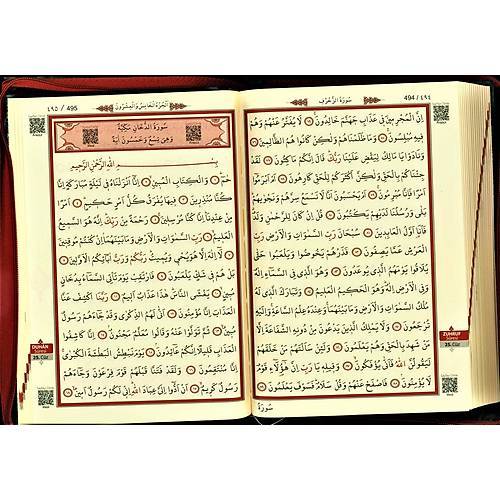 494 / ٤٩٤
سُورَةُ الزُّخْرُفِ
اِنَّ الْمُجْرِمِينَ فِي عَذَابِ جَهَنَّمَ خَالِدُونَ ﴿٧٤﴾ لَا يُفَتَّرُ عَنْهُمْ وَهُمْ
فِيهِ مُبْلِسُونَ ﴿٧٥﴾ وَمَا ظَلَمْنَاهُمْ وَلٰكِنْ كَانُوا هُمُ الظَّالِمِينَ ﴿٧٦﴾
وَنَادَوْا يَا مَالِكُ لِيَقْضِ عَلَيْنَا رَبُّكَ قَالَ اِنَّكُمْ مَاكِثُونَ ﴿٧٧﴾ لَقَدْ
جِئْنَاكُمْ بِالْحَقِّ وَلٰكِنَّ اَكْثَرَكُمْ لِلْحَقِّ كَارِهُونَ ﴿٧٨﴾ اَمْ اَبْرَمُوا
اَمْرًا فَاِنَّا مُبْرِمُونَ ﴿٧٩﴾ اَمْ يَحْسَبُونَ اَنَّا لَا نَسْمَعُ سِرَّهُمْ وَنَجْوٰيهُمْ
بَلٰى وَرُسُلُنَا لَدَيْهِمْ يَكْتُبُونَ ﴿٨٠﴾ قُلْ اِنْ كَانَ لِلرَّحْمٰنِ وَلَدٌ
فَاَنَا اَوَّلُ الْعَابِدِينَ ﴿٨١﴾ سُبْحَانَ رَبِّ السَّمٰوَاتِ وَالْاَرْضِ رَبِّ
الْعَرْشِ عَمَّا يَصِفُونَ ﴿٨٢﴾ فَذَرْهُمْ يَخُوضُوا وَيَلْعَبُوا حَتّٰى
يُلَاقُوا يَوْمَهُمُ الَّذِي يُوعَدُونَ ﴿٨٣﴾ وَهُوَ الَّذِي فِي السَّمَاءِ اِلٰهٌ
وَفِي الْاَرْضِ اِلٰهٌ وَهُوَ الْحَكِيمُ الْعَلِيمُ ﴿٨٤﴾ وَتَبَارَكَ الَّذِي لَهُ
مُلْكُ السَّمٰوَاتِ وَالْاَرْضِ وَمَا بَيْنَهُمَا وَعِنْدَهُ عِلْمُ السَّاعَةِ وَاِلَيْهِ
تُرْجَعُونَ ﴿٨٥﴾ وَلَا يَمْلِكُ الَّذِينَ يَدْعُونَ مِنْ دُونِهِ الشَّفَاعَةَ اِلَّا
مَنْ شَهِدَ بِالْحَقِّ وَهُمْ يَعْلَمُونَ ﴿٨٦﴾ وَلَئِنْ سَاَلْتَهُمْ مَنْ خَلَقَهُمْ
لَيَقُولُنَّ اللّٰهُ فَاَنّٰى يُؤْفَكُونَ ﴿٨٧﴾ وَقِيلِهِ يَا رَبِّ اِنَّ هٰؤُلَاءِ قَوْمٌ
لَا يُؤْمِنُونَ ﴿٨٨﴾ فَاصْفَحْ عَنْهُمْ وَقُلْ سَلَامٌ فَسَوْفَ يَعْلَمُونَ ﴿٨٩﴾
سُورَةُ
ZUHRUF
Sûresi
25. Cüz
اَلْجُزْءُ الْخَامِسُ وَالْعِشْرُونَ
٤٩٥ / 495
سُورَةُ الدُّخَانِ مَكِّيَّةٌ
وَهِيَ تِسْعٌ وَخَمْسُونَ اٰيَةً
بِسْمِ اللّٰهِ الرَّحْمٰنِ الرَّحِيمِ
حٰمٓ ﴿١﴾ وَالْكِتَابِ الْمُبِينِ ﴿٢﴾ اِنَّا اَنْزَلْنَاهُ فِي لَيْلَةٍ مُبَارَكَةٍ اِنَّا
كُنَّا مُنْذِرِينَ ﴿٣﴾ فِيهَا يُفْرَقُ كُلُّ اَمْرٍ حَكِيمٍ ﴿٤﴾ اَمْرًا
مِنْ عِنْدِنَا اِنَّا كُنَّا مُرْسِلِينَ ﴿٥﴾ رَحْمَةً مِنْ رَبِّكَ اِنَّهُ هُوَ السَّمِيعُ
الْعَلِيمُ ﴿٦﴾ رَبِّ السَّمٰوَاتِ وَالْاَرْضِ وَمَا بَيْنَهُمَا اِنْ كُنْتُمْ مُوقِنِينَ
﴿٧﴾ لَا اِلٰهَ اِلَّا هُوَ يُحْيِي وَيُمِيتُ رَبُّكُمْ وَرَبُّ اٰبَائِكُمُ الْاَوَّلِينَ ﴿٨﴾
بَلْ هُمْ فِي شَكٍّ يَلْعَبُونَ ﴿٩﴾ فَارْتَقِبْ يَوْمَ تَأْتِي السَّمَاءُ بِدُخَانٍ
مُبِينٍ ﴿١٠﴾ يَغْشَى النَّاسَ هٰذَا عَذَابٌ اَلِيمٌ ﴿١١﴾ رَبَّنَا اكْشِفْ عَنَّا
الْعَذَابَ اِنَّا مُؤْمِنُونَ ﴿١٢﴾ اَنّٰى لَهُمُ الذِّكْرٰى وَقَدْ جَاءَهُمْ رَسُولٌ
مُبِينٌ ﴿١٣﴾ ثُمَّ تَوَلَّوْا عَنْهُ وَقَالُوا مُعَلَّمٌ مَجْنُونٌ ﴿١٤﴾ اِنَّا كَاشِفُوا
الْعَذَابِ قَلِيلًا اِنَّكُمْ عَائِدُونَ ﴿١٥﴾ يَوْمَ نَبْطِشُ الْبَطْشَةَ الْكُبْرٰى
اِنَّا مُنْتَقِمُونَ ﴿١٦﴾ وَلَقَدْ فَتَنَّا قَبْلَهُمْ قَوْمَ فِرْعَوْنَ وَجَاءَهُمْ
رَسُولٌ كَرِيمٌ ﴿١٧﴾ اَنْ اَدُّوا اِلَيَّ عِبَادَ اللّٰهِ اِنِّي لَكُمْ رَسُولٌ اَمِينٌ ﴿١٨﴾
DUHÂN
Sûresi
25. Cüz